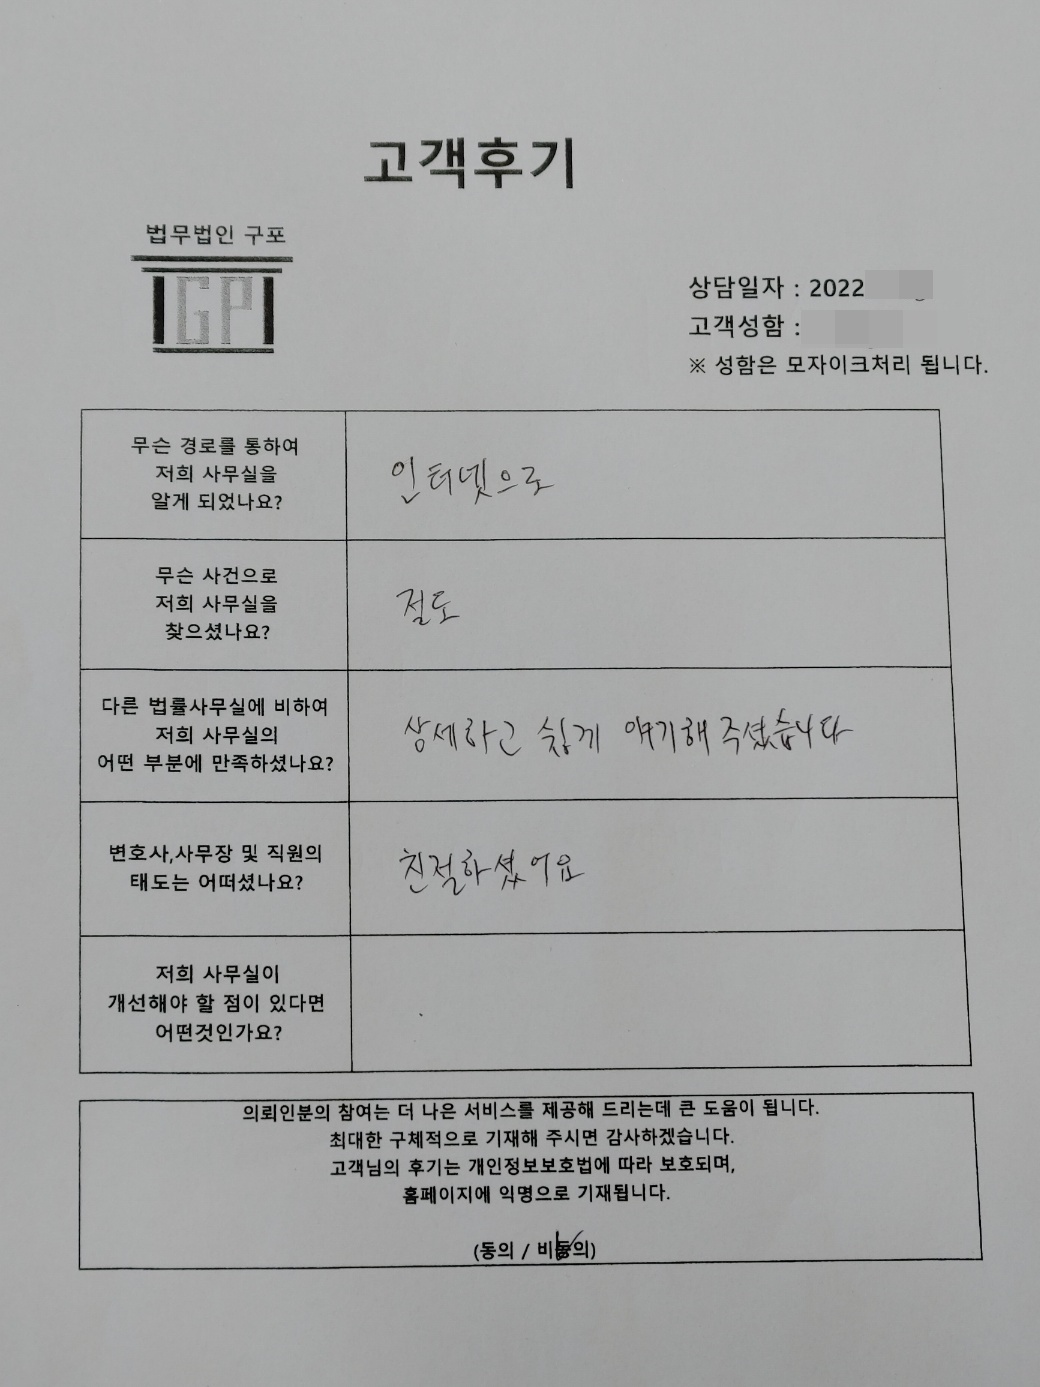 고객후기
법무법인 구포
GP
상담일자 : 2022
고객성함 :
※ 성함은 모자이크처리 됩니다.
무슨 경로를 통하여
저희 사무실을
알게 되었나요?
인터넷으로
무슨 사건으로
저희 사무실을
찾으셨나요?
절도
다른 법률사무실에 비하여
저희 사무실의
어떤 부분에 만족하셨나요?
상세하고 쉽게 얘기해주셨습니다
변호사,사무장 및 직원의
태도는 어떠셨나요?
친절하셨어요
저희 사무실이
개선해야 할 점이 있다면
어떤것인가요?
의뢰인분의 참여는 더 나은 서비스를 제공해 드리는데 큰 도움이 됩니다.
최대한 구체적으로 기재해 주시면 감사하겠습니다.
고객님의 후기는 개인정보보호법에 따라 보호되며,
홈페이지에 익명으로 기재됩니다.
(동의 / 비동의)